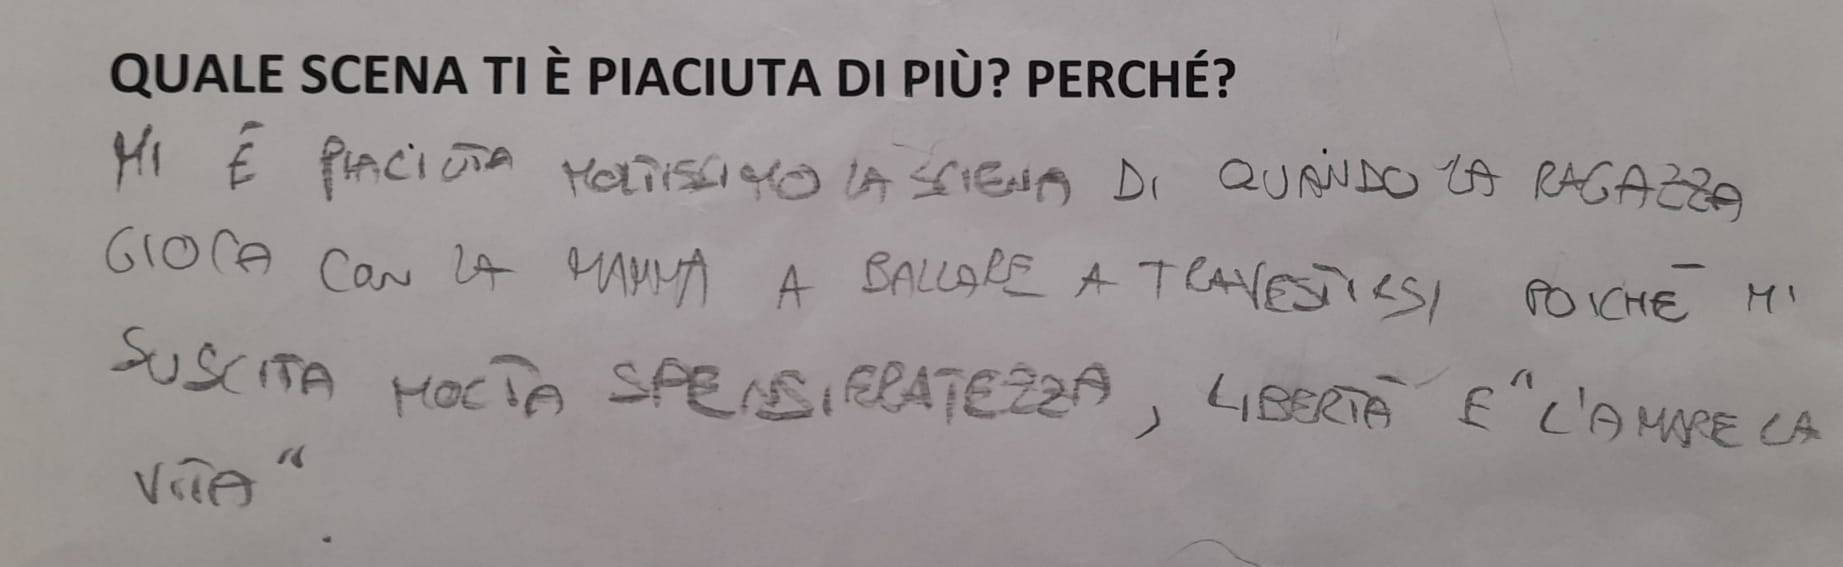 QUALE SCENA TI È PIACIUTA DI PIÙ? PERCHÉ?
MI È PIACIUTA MOLTISSIMO LA SCIENA DI QUANDO LA RAGAZZA
GIOCA CON LA MAMMA A BALLARE A TRAVESTIRSI POICHÉ MI
SUSCITA MOLTA SPENSIERATEZZA, LIBERTÀ E "L'AMARE LA
VITA".